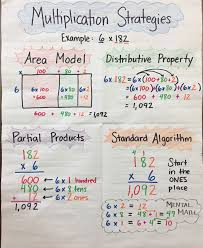 Multiplication Strategies
Example: 6 x 182
Area Model
x 100 + 80 + 2
6 6 x 100 6 x 80 6 x 2
= 600 = 480 = 12
600 + 480 + 12
= 1,092
Distributive Property
6 x 182 = 6 x (100 + 80 + 2)
= (6 x 100) + (6 x 80) + (6 x 2)
= 600 + 480 + 12
= 1,092
Partial Products
182
x 6
600 ← 6 x 1 hundred
480 ← 6 x 8 tens
+ 12 ← 6 x 2 ones
1,092
Standard Algorithm
182
x 6
1,092
Start
in the
ONES
place
6 x 2 = 12
6 x 8 = 48 + 1 = 49
6 x 1 = 6 + 4 = 10
MENTAL
MATH